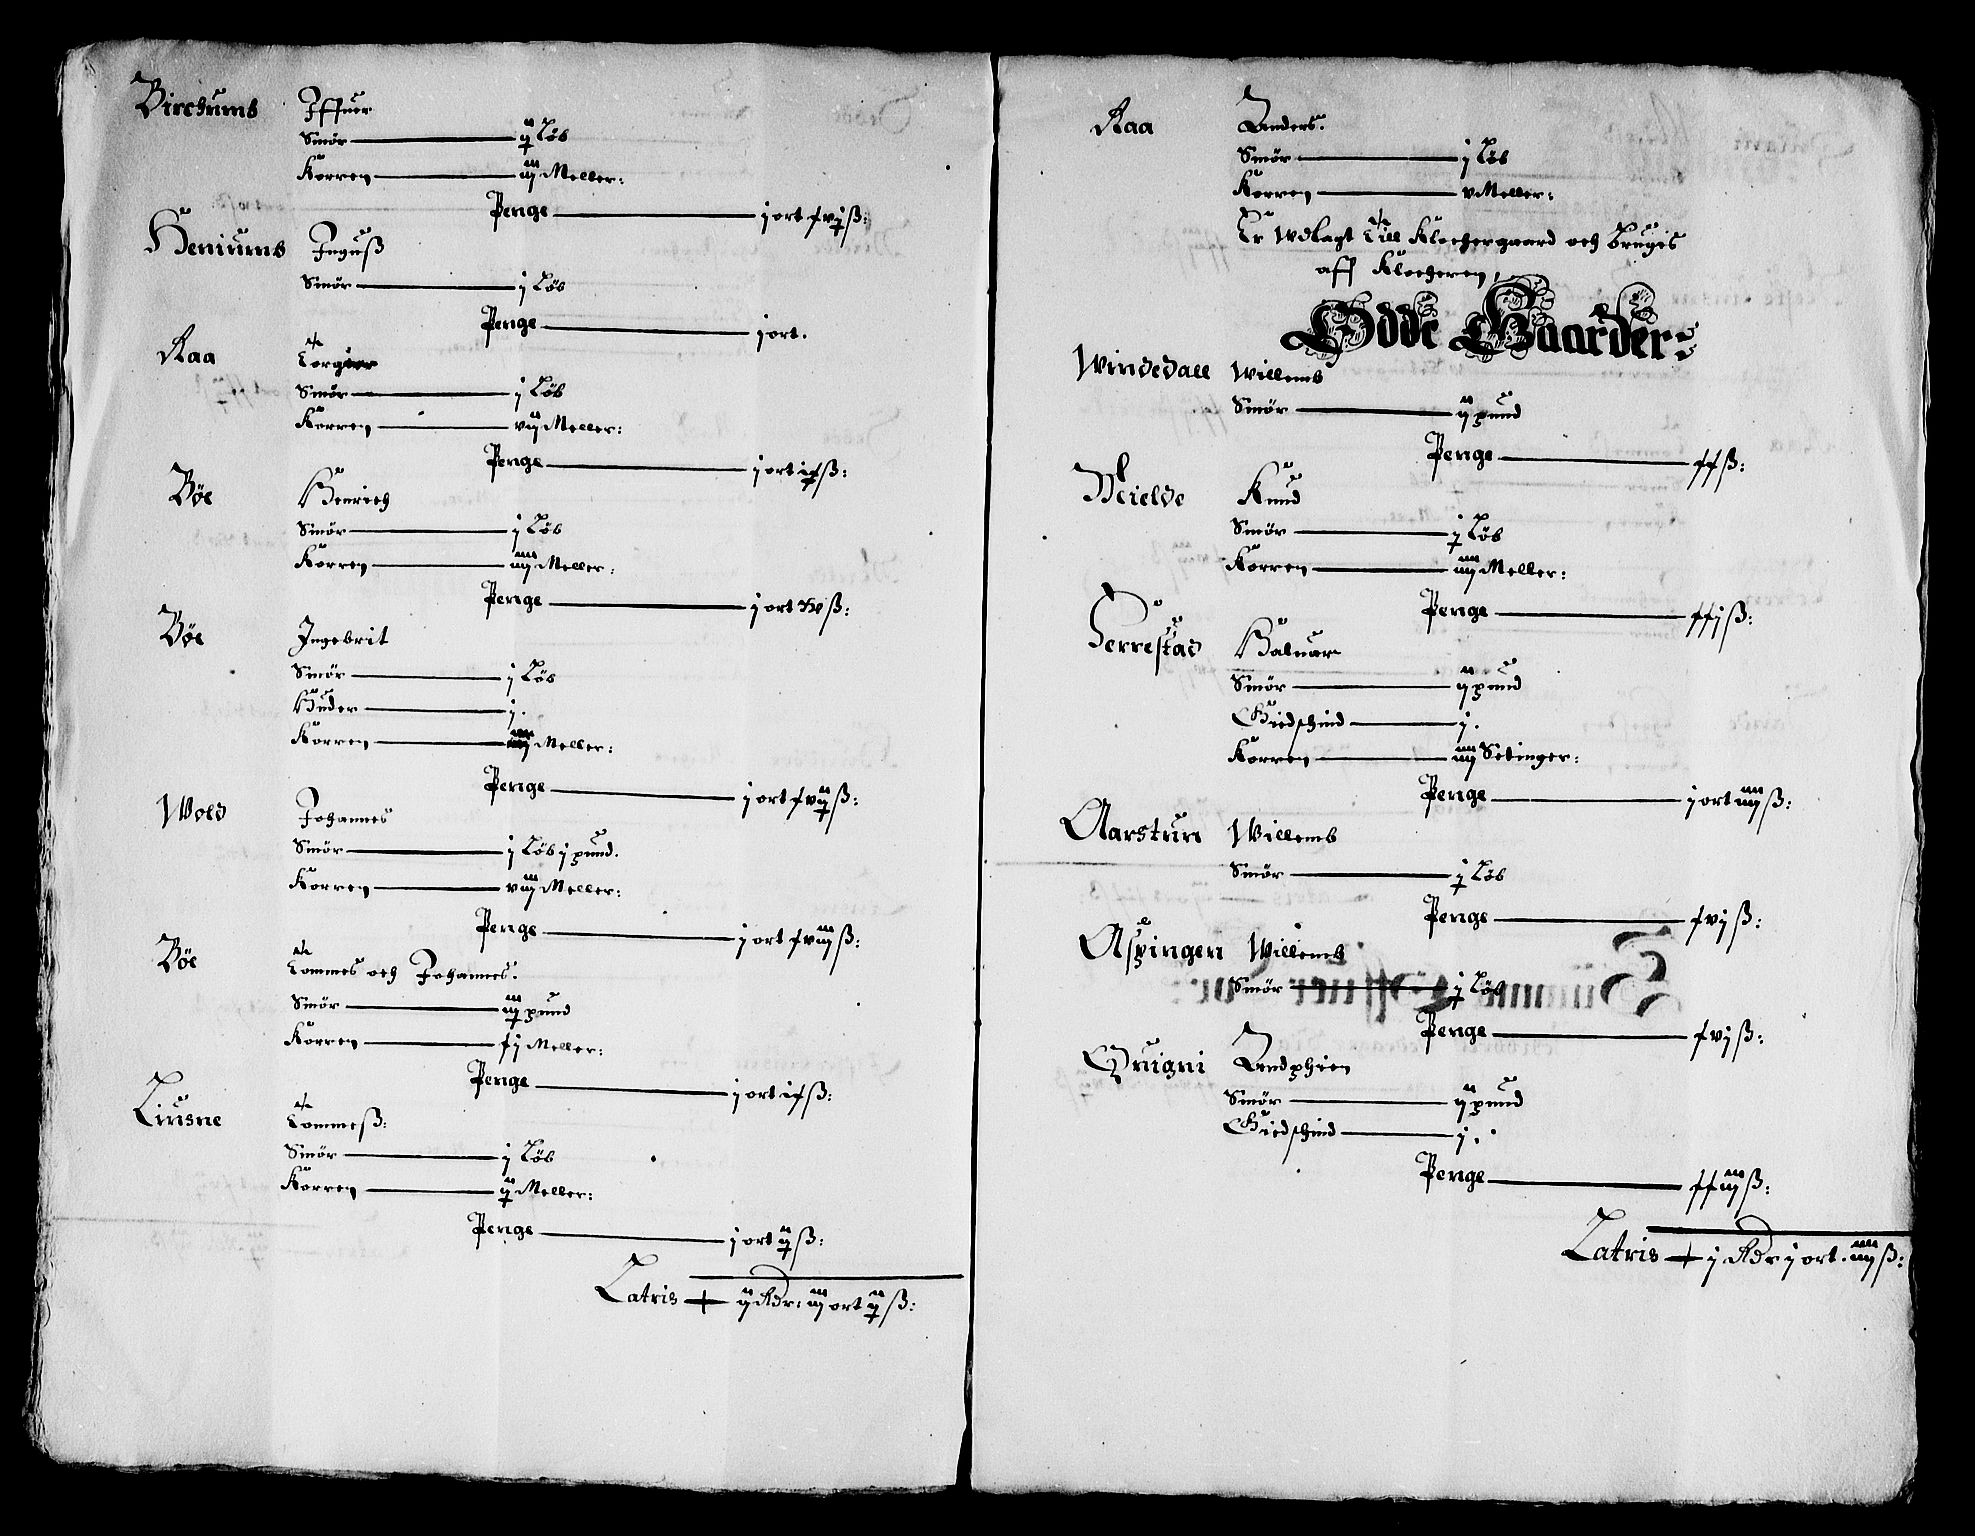 Birchums Iffuer
Smør — ij Løb
Korren — iij Meller:
Penge — j ort xvj ß:
Heniums Inguß
Smør — j Løb
Penge — j ort.
Aaa Torger
Smør — j Løb
Korren — vij Meller:
Penge — j ort ix ß:
Böe Henrich
Smør — j Løb
Korren — iiij Meller:
Penge — j ort xv ß:
Böe Ingebrit
Smør — j Løb
Huder — j.
Korren — iiij Meller:
Penge — j ort xvij ß:
Wold Johannes
Smør — j Løb j pund.
Korren — viij Meller:
Penge — j ort xviij ß:
Böe Tommes och Johannes.
Smør — iij pund
Korren — xj Meller:
Penge — j ort ix ß:
Liusne Tommeß:
Smør — j Løb
Korren — ij Meller:
Penge — j ort ij ß:
Latris — ij Rdr: iij ort ij ß:
Aaa Anders.
Smør — j Løb
Korren — v Meller:
Er Wdlagt Till Klochergaard och Bruges
aff Klocheren,
Odde Gaarder:
Windedall Willems
Smør — ij pund
Penge — xx ß:
Mielde Knud
Smør — j Løb
Korren — iij Meller:
Penge — xxj ß:
Jerrestad Haluar
Smør — ij pund
Giedschind — j.
Korren — iij Setinger:
Penge — j ort iiij ß:
Aarstun Willemb
Smør — j Løb
Penge — xvj ß:
Aspingen Willemb
Smør — j Løb
Penge — xvj ß:
Quigni Endphien
Smør — ij pund
Giedschind — j.
Penge — xxiij ß:
Latris — j Rdr j ort. iiij ß: